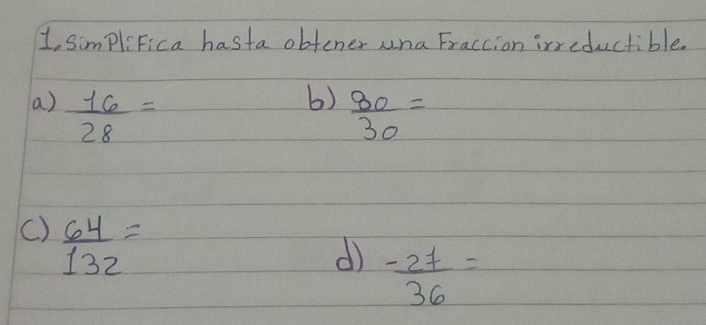 1. Simplifica hasta obtener una Fraccion irreductible.
a) 16/28 =
b) 80/30 =
c) 64/132 =
d) -27/36 =